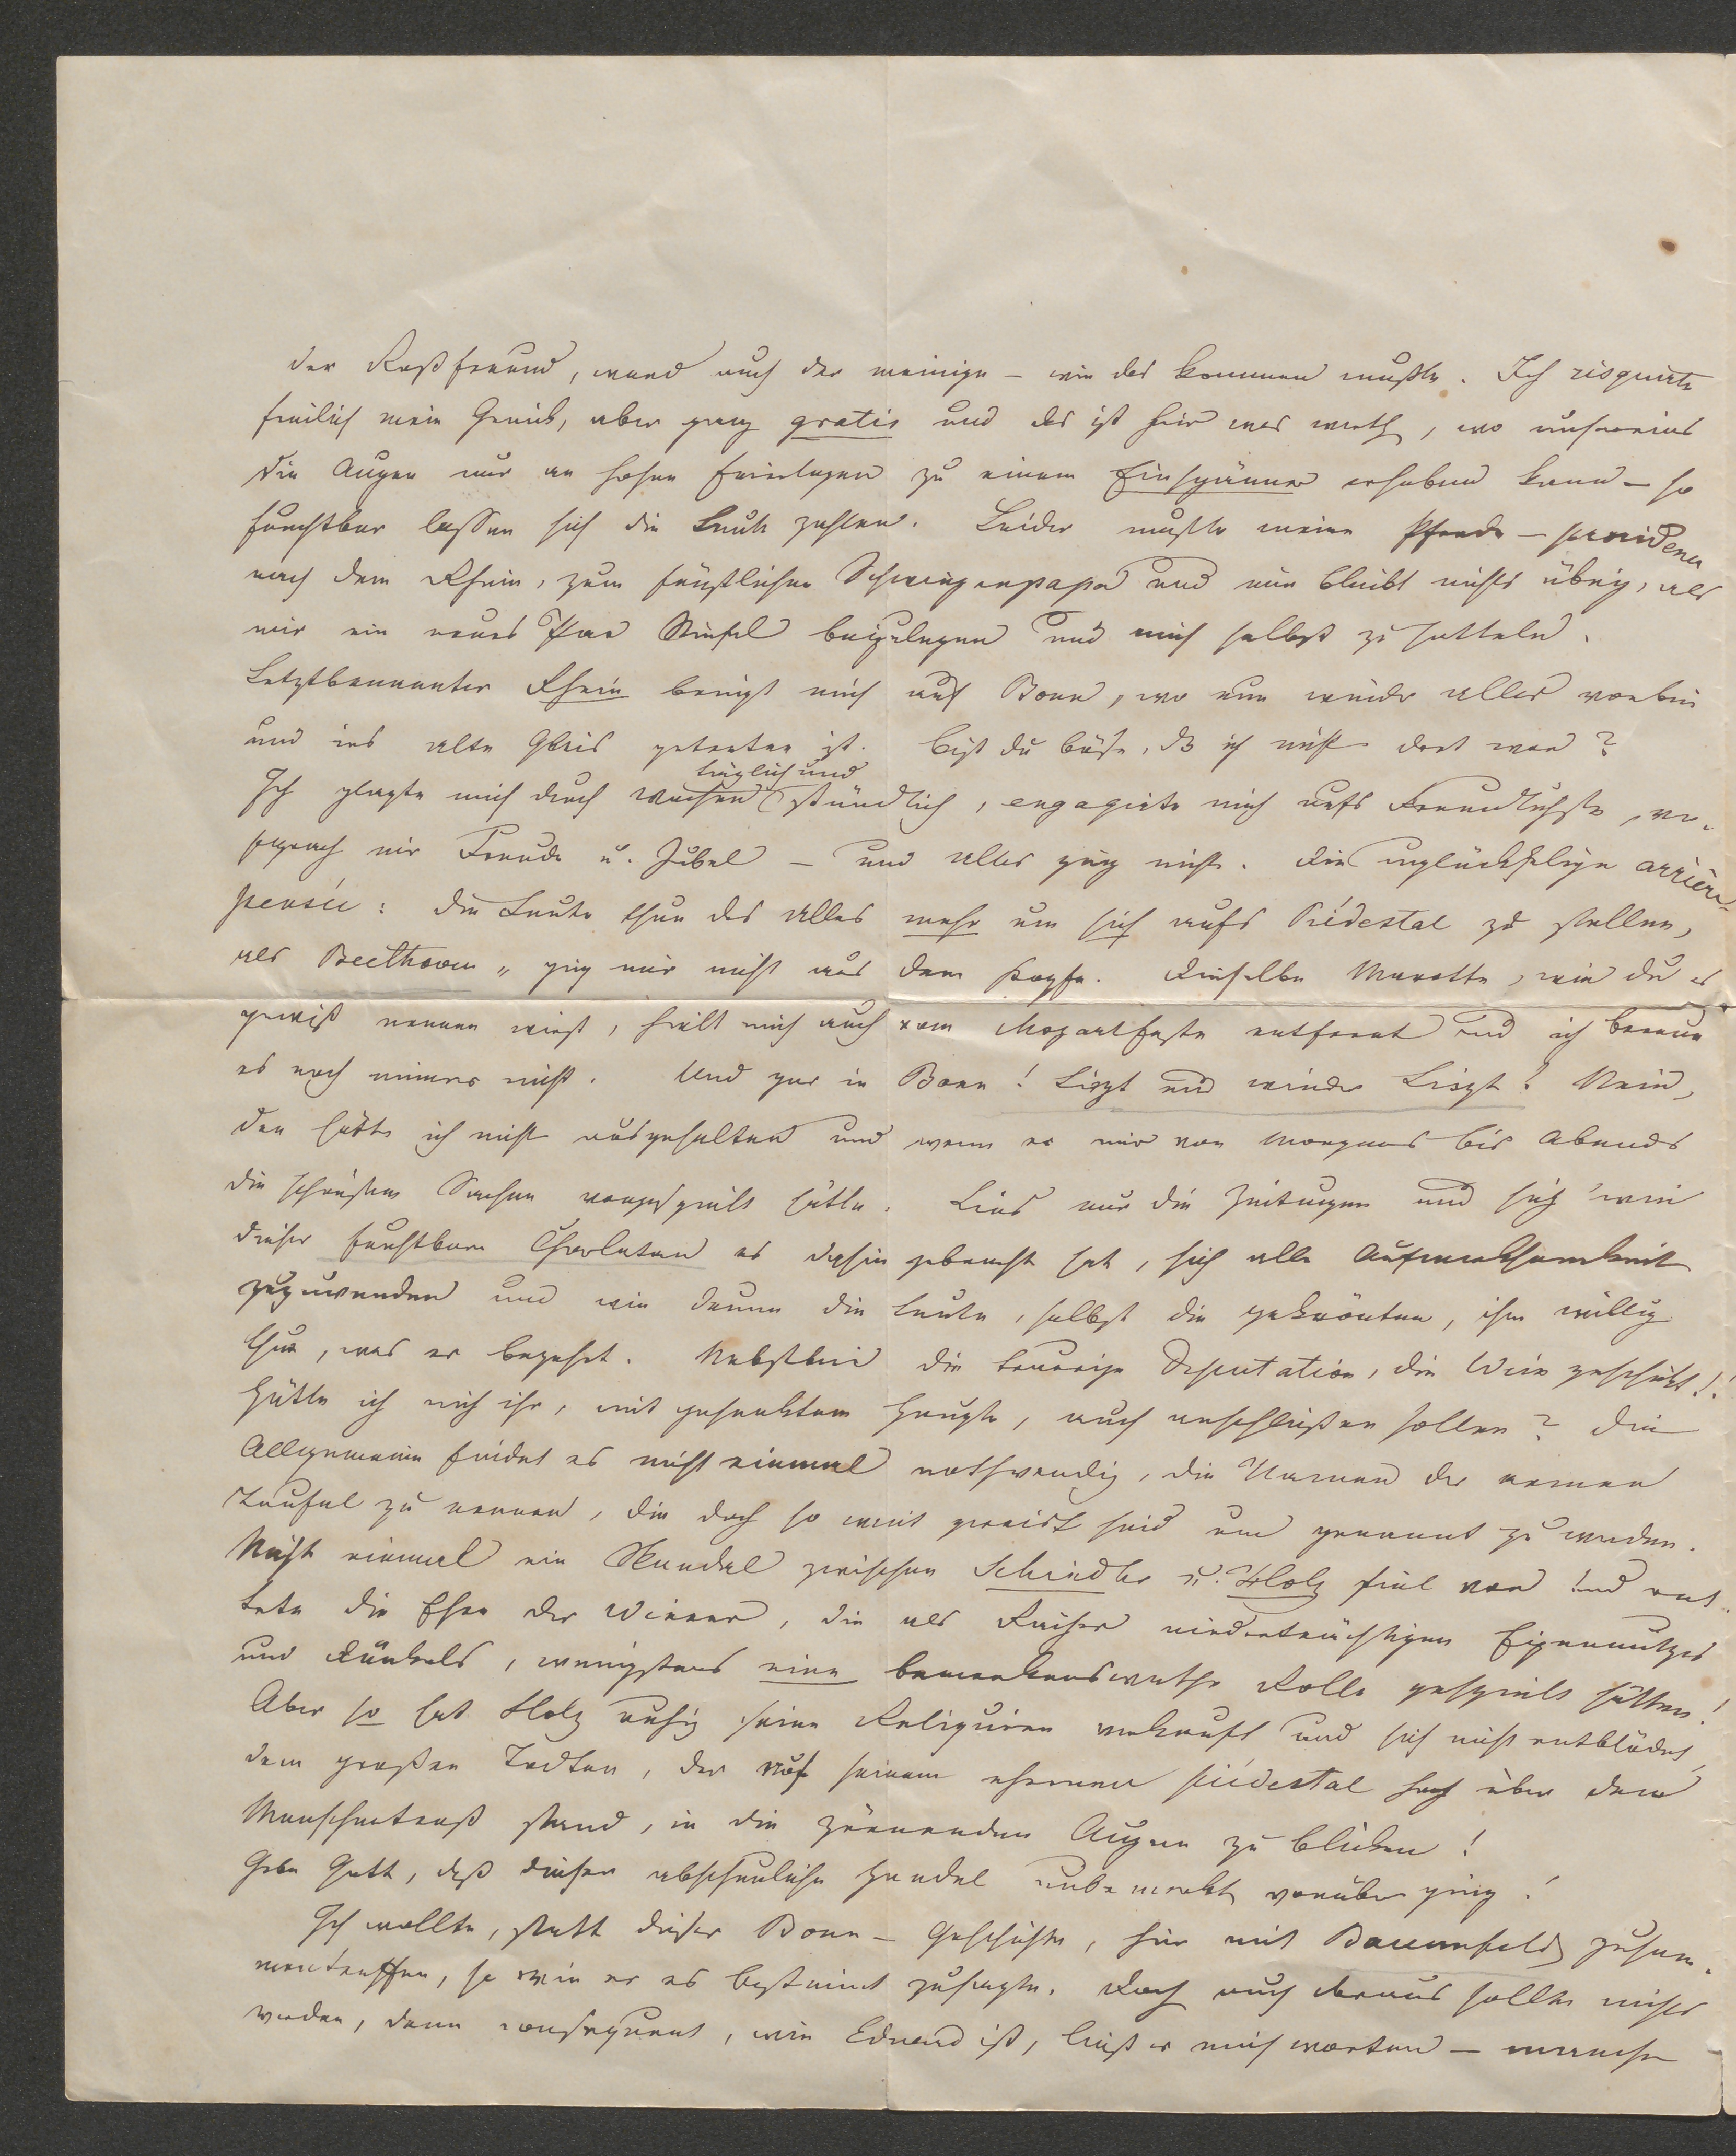 der Roßfreund, ward auch der meinige – wie das kommen mußte. Ich risquirte
freilich mein Genick, aber ganz gratis und das ist hier was werth, wo unsereins
die Augen nur an hohen Feiertagen zu einem Einspänner erheben kann – so
furchtbar lassen sich die Leute zahlen. Leider mußte meine Pferde–providence
nach dem Rhein, zum fürstlichen Schwiegerpapa und nun bleibt nichts übrig, als
mir ein neues Paar Stiefel beizulegen und mich selbst zu satteln.
Letztbenannter Rhein bringt mich auf Bonn, wo nun wieder alles vorbei
und ins alte Gleis getreten ist. Bist du böse, dß ich nicht dort war?
täglich und
Ich plagte mich durch Wochen stündlich, engagirte mich aufs Freundlichste, ver-
sprach mir Freude u. Jubel – und alles ging nicht. Die unglückselige arrière-
pensée: die Leute thun das alles mehr um sich aufs Piédestal zu stellen,
als Beethoven „ ging mir nicht aus dem Kopfe. Dieselbe Marotte, wie du es
gewiß nennen wirst, hielt mich auch vom Mozartfeste entfernt und ich bereue
es noch immer nicht. Und gar in Bonn! Liszt und wieder Liszt! Nein,
den hätte ich nicht ausgehalten und wenn er mir von Morgens bis Abends
die schönsten Sachen vorgespielt hätte. Lies nur die Zeitungen und sieh wie
dieser furchtbare Charlatan es dahin gebracht hat, sich alle Aufmerksamkeit
zuzuwenden und wie dann die Leute, selbst die gekrönten, ihm willig
thun, was er begehrt. Nebstbei die traurige Deputation, die Wien geschickt!!
Hätte ich mich ihr, mit gesenktem Haupte, auch anschließen sollen? Die
Allgemeine findet es nicht einmal nothwendig, die Namen der armen
Teufel zu nennen, die doch so weit gereist sind um genannt zu werden.
Nicht einmal ein Skandal zwischen Schindler u. Holz fiel vor und ret-
tete die Ehre der Wiener, die als Träger niederträchtigen Eigennutzes
und Dünkels, wenigstens eine bemerkenswerthe Rolle gespielt hätten!
Aber so hat Holz ruhig seine Reliquien verkauft und sich nicht entblödet,
dem großen Todten, der auf seinem ehernen piédestal hoch über dem
Menschentroß stand, in die zürnenden Augen zu blicken!
Gebe Gott, daß dieser abscheuliche Handel unbemerkt vorüber ging!
Ich wollte, statt dieser Bonn–Geschichte, hier mit Bauernfeld zusam-
mentreffen, so wie er es bestimmt zusagte. Doch auch daraus sollte nichts
werden, denn consequent, wie Eduard ist, ließ er mich warten – manche